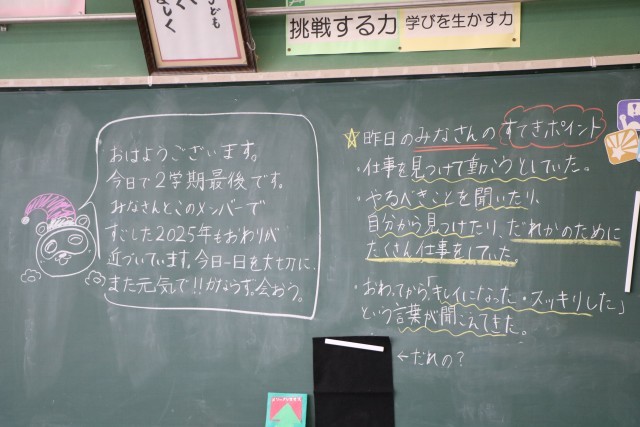 挑戦する力
学びを生かす力
おはようございます。
今日で2学期最後です。
みなさんとこのメンバーで
すごした2025年もおわりが
近づいています。今日一日を大切に、
また元気で!!かならず。会おう。
☆昨日のみなさんのすてきポイント
・仕事を見つけて動こうとしていた。
・やるべきことを聞いたり、
自分から見つけたり、だれかのために
たくさん仕事をしていた。
・おわってから「キレイになった・スッキリした」
という言葉が聞こえてきた。
←だれの?